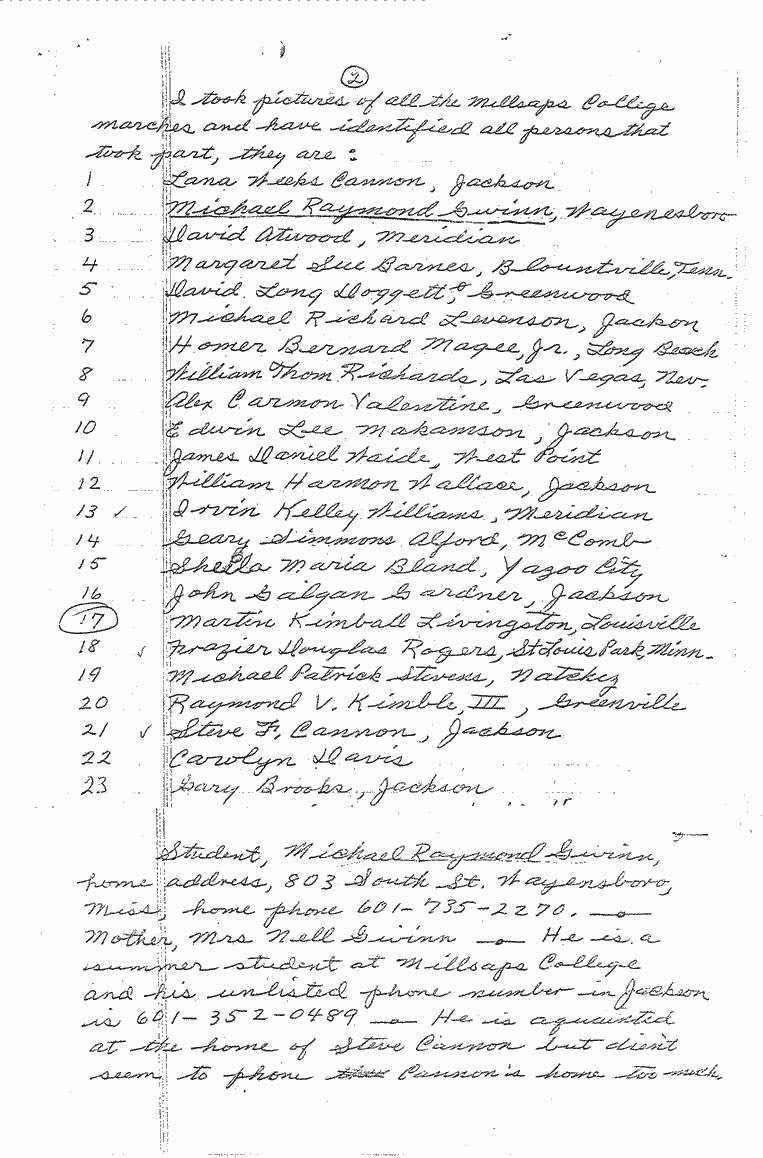 2
I took pictures of all the Millsaps College
marches and have identified all persons that
took part, they are :
1 Lana Weeks Cannon, Jackson
2 Michael Raymond Gwinn, Waynesboro
3 David Atwood, Meridian
4 Margaret Sue Barnes, Blountville, Tenn.
5 David Long Doggett, Greenwood
6 Michael Richard Levenson, Jackson
7 Homer Bernard Magee, Jr., Long Beach
8 William Thom Richards, Las Vegas, Nev.
9 Alex Carmon Valentine, Greenwood
10 Edwin Lee Makamson, Jackson
11 James Daniel Waide, West Point
12 William Harmon Wallace, Jackson
13 ✓ Irvin Kelley Williams, Meridian
14 Geary Simmons Alford, McComb
15 Sheila Maria Bland, Yazoo City
16 John Galgan Gardner, Jackson
17 Martin Kimball Livingston, Louisville
18 ✓ Frazier Douglas Rogers, St Louis Park, Minn.
19 Michael Patrick Stevens, Natchez
20 Raymond V. Kimble, III, Greenville
21 ✓ Steve F. Cannon, Jackson
22 Carolyn Davis
23 Gary Brooks, Jackson
Student, Michael Raymond Gwinn,
home address, 803 South St. Waynesboro,
Miss, home phone 601-735-2270. —
Mother, Mrs Nell Gwinn — He is a
summer student at Millsaps College
and his unlisted phone number in Jackson
is 601-352-0489 — He is aquainted
at the home of Steve Cannon but dient
seem to phone Cannon's home too much.